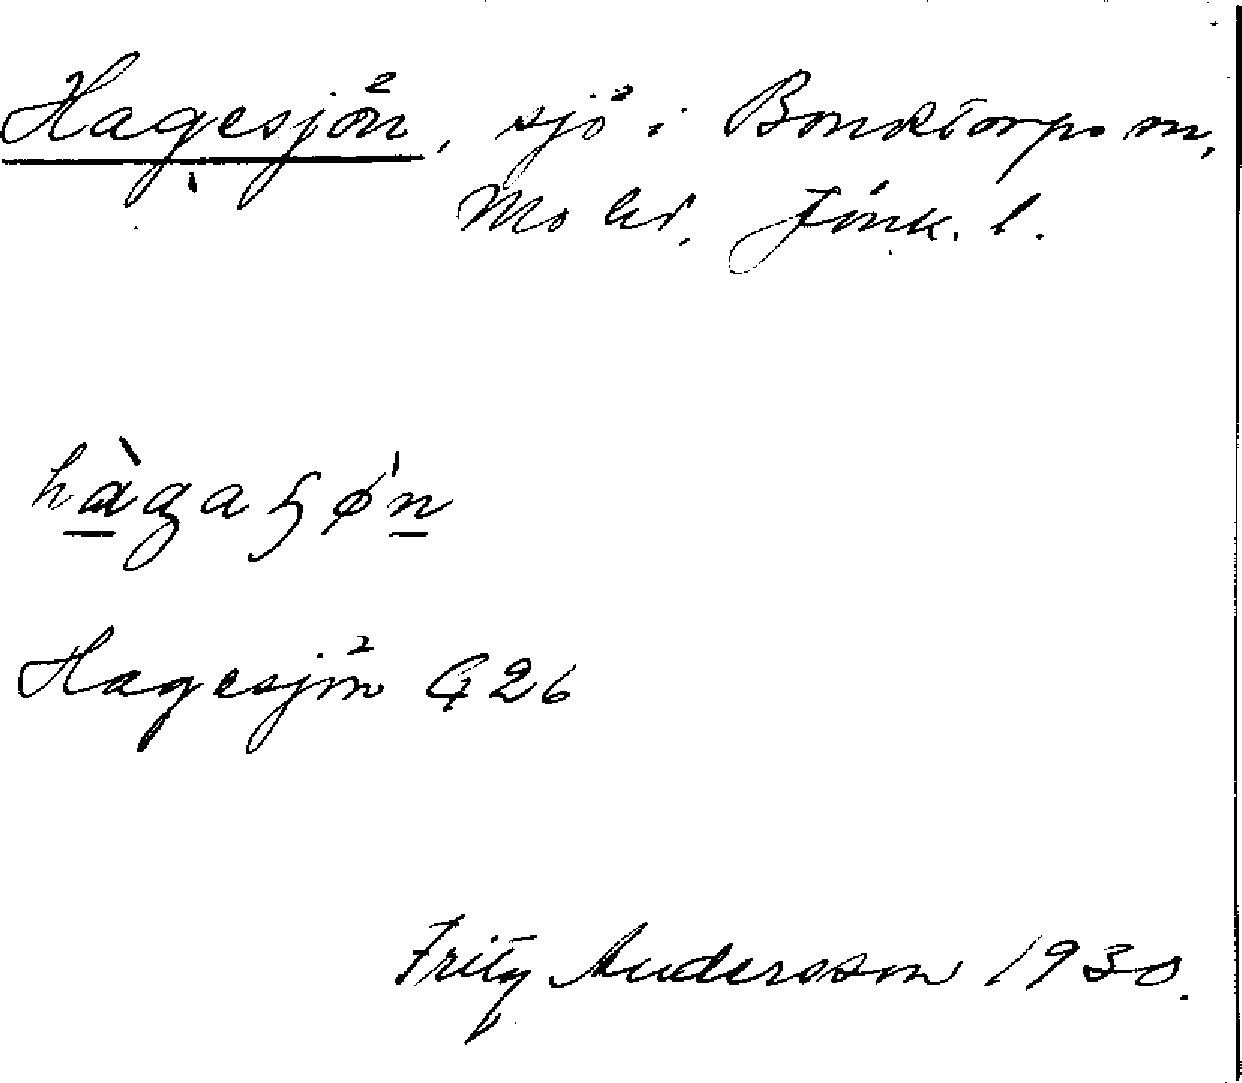 Hagesjön, sjö i Bondstorps sn,
Mo hd, Jönk. l.
hàgaʂø'n
Hagesjön G 26
Fritz Andersson 1930.